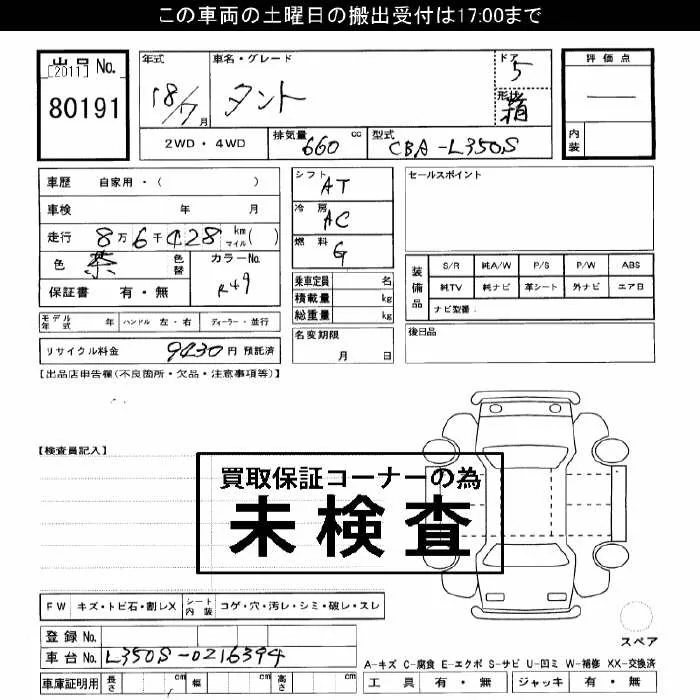 この車両の土曜日の搬出受付は17:00まで
出品No.
[2011]
80191
年式
18/7月
車名・グレード
タント
ドア
5
形状
箱
評価点
―
内装
2WD・4WD
排気量 660 cc
型式 CBA-L350S
車歴 自家用・( )
車検 年 月
走行 8万6千428 km マイル ( )
色 茶 色替
カラーNo. R49
保証書 有・無
シフト AT
冷房 AC
燃料 G
乗車定員 名
積載量 kg
総重量 kg
セールスポイント
装備品
S/R 純A/W P/S P/W ABS
純TV 純ナビ 革シート 外ナビ エアB
ナビ型番:
モデル年式 年 ハンドル 左・右 ディーラー・並行
名変期限 月 日
後日品
リサイクル料金 9430 円 預託済
【出品店申告欄(不良箇所・欠品・注意事項等)】
【検査員記入】
買取保証コーナーの為
未検査
FW キズ・トビ石・割レX シート内装 コゲ・穴・汚レ・シミ・破レ・スレ
スペア
登録No.
車台No. L350S-0216394
車庫証明用 長さ cm 幅 cm 高さ cm
A-キズ C-腐食 E-エクボ S-サビ U-凹ミ W-補修 XX-交換済
工具 有・無 ジャッキ 有・無